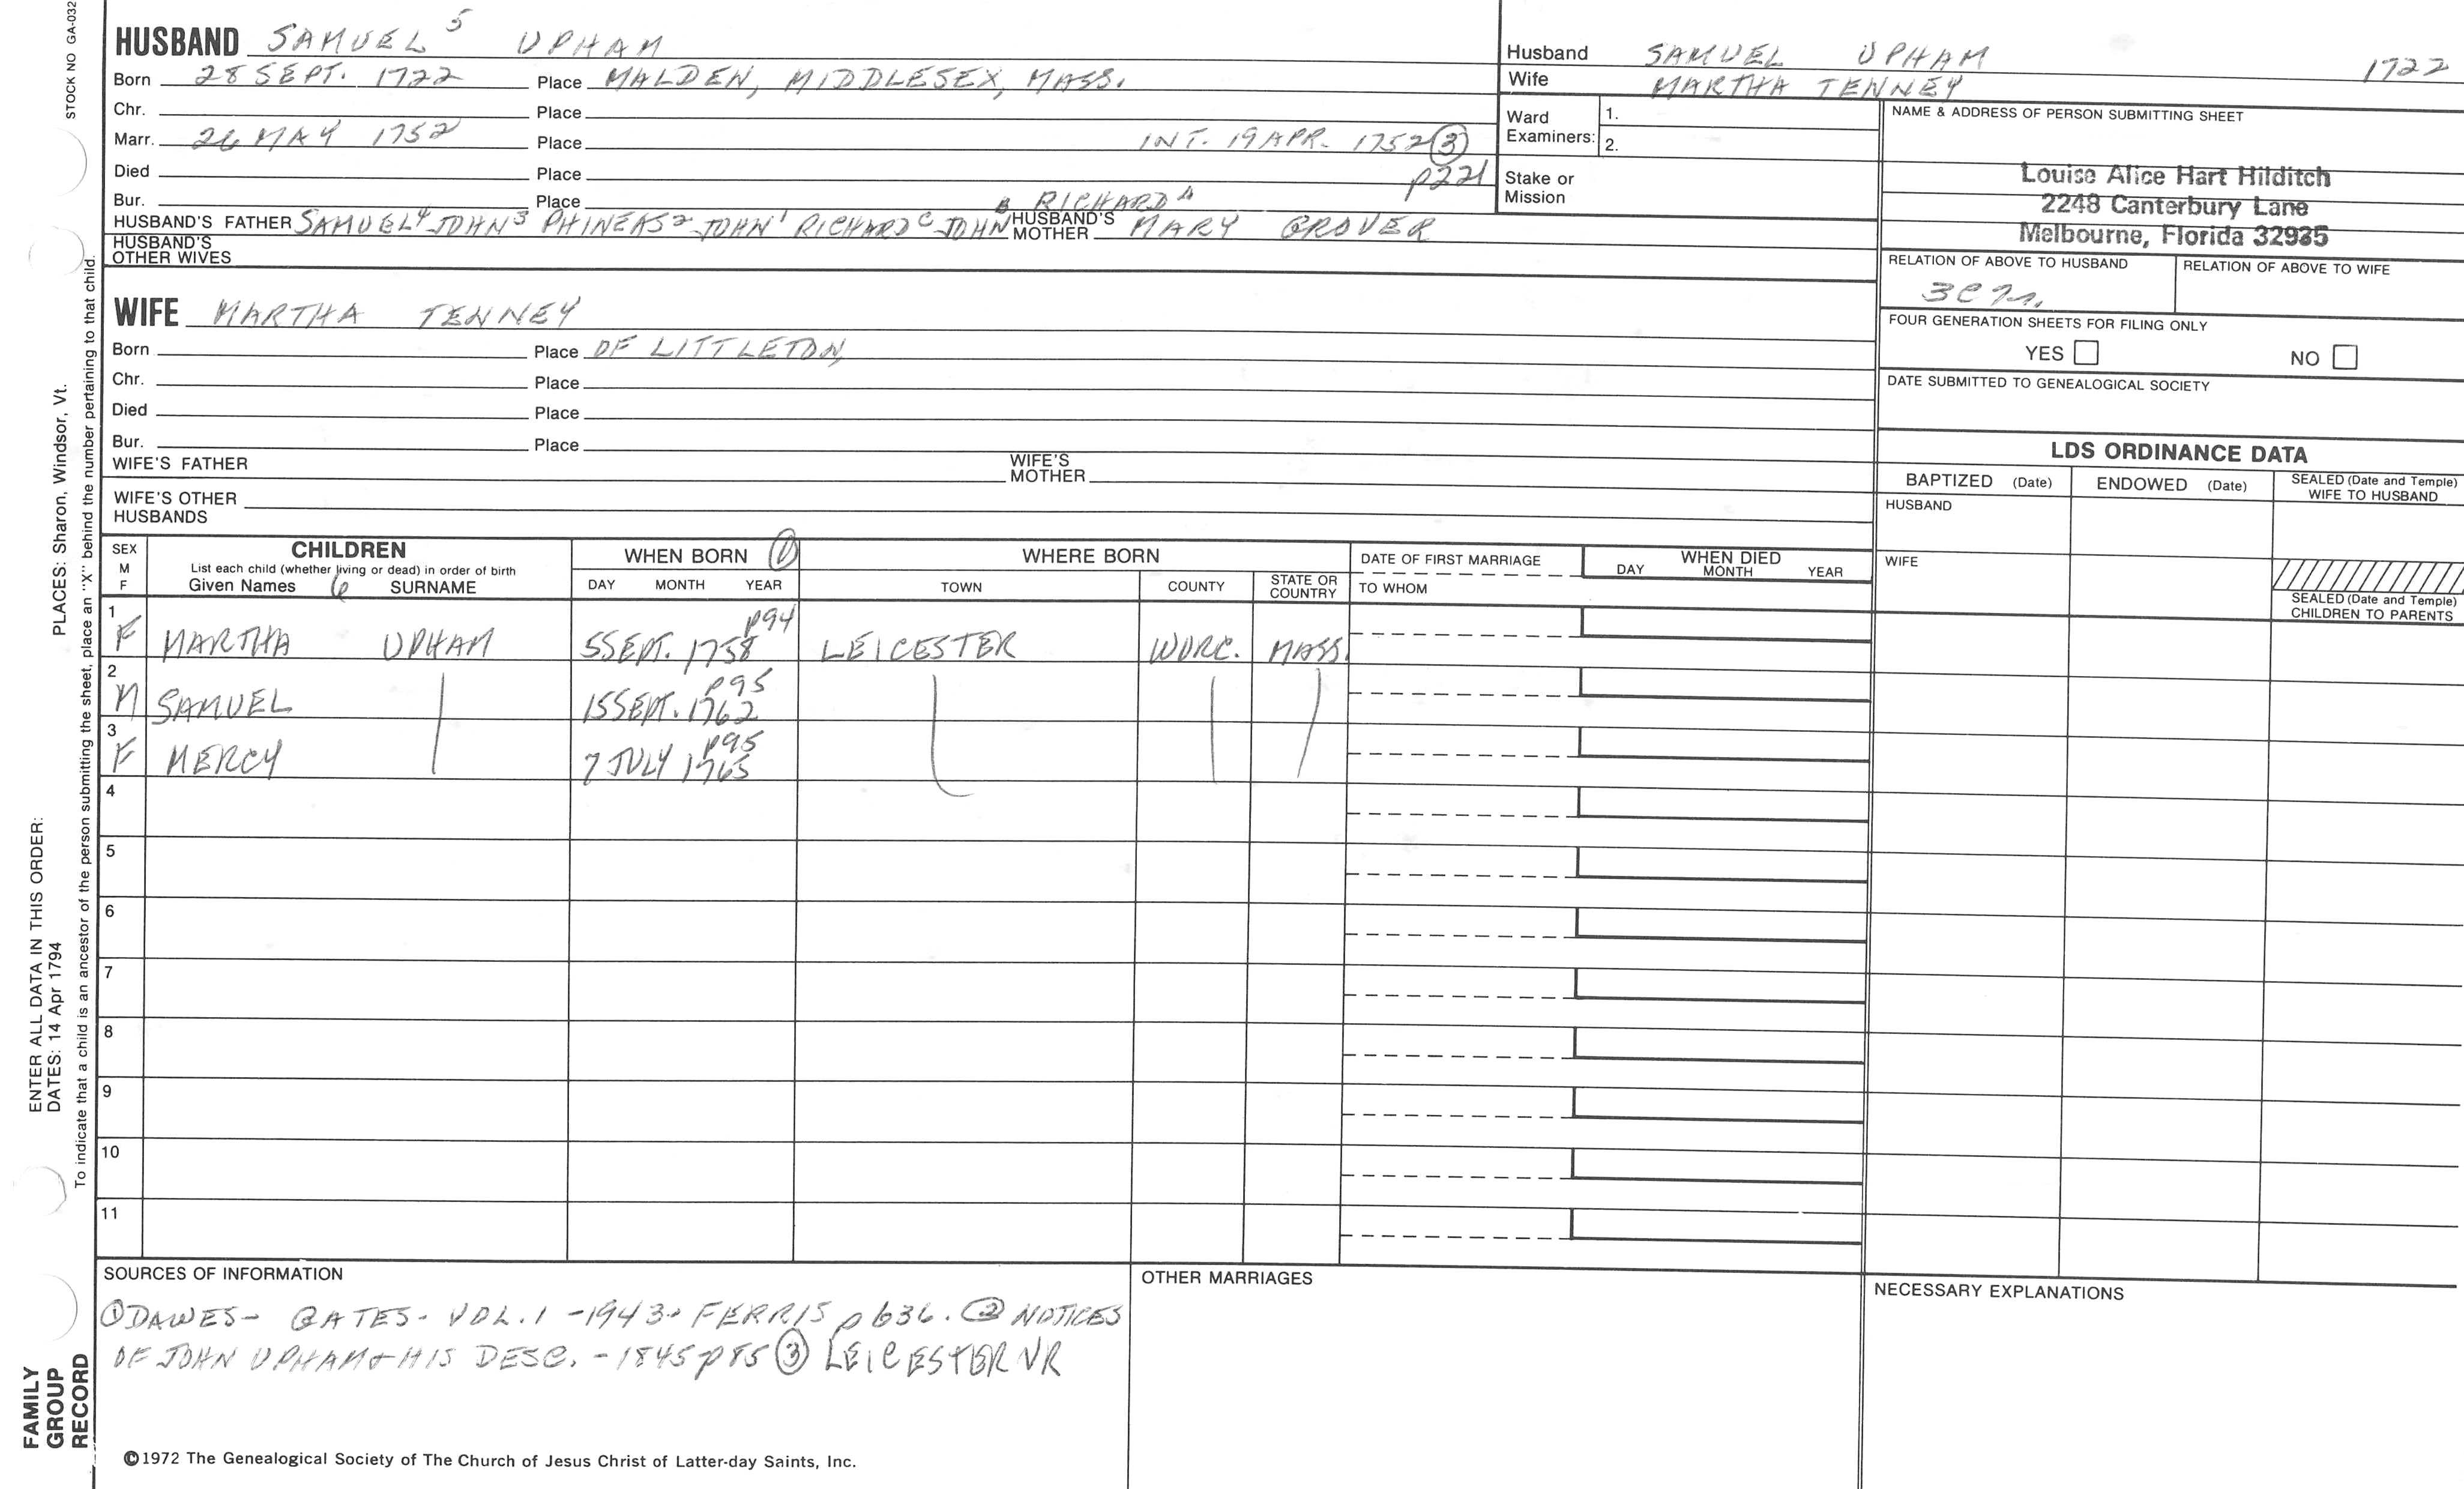 STOCK NO GA-032
HUSBAND SAMUEL 5 UPHAM
Born 28 SEPT. 1722 Place MALDEN, MIDDLESEX, MASS.
Chr. Place
Marr. 26 MAY 1752 Place INT. 19 APR. 1752 ③
Died Place p221
Bur. Place B RICHARD A
HUSBAND'S FATHER SAMUEL 4 JOHN 3 PHINEAS 2 JOHN 1 RICHARD C JOHN HUSBAND'S MOTHER MARY GROVER
HUSBAND'S OTHER WIVES
Husband SAMUEL UPHAM 1722
Wife MARTHA TENNEY
Ward Examiners: 1.
2.
Stake or Mission
NAME & ADDRESS OF PERSON SUBMITTING SHEET
Louise Alice Hart Hilditch
2248 Canterbury Lane
Melbourne, Florida 32935
RELATION OF ABOVE TO HUSBAND RELATION OF ABOVE TO WIFE
FOUR GENERATION SHEETS FOR FILING ONLY
YES NO
DATE SUBMITTED TO GENEALOGICAL SOCIETY
WIFE MARTHA TENNEY
Born Place OF LITTLETON,
Chr. Place
Died Place
Bur. Place
WIFE'S FATHER WIFE'S MOTHER
WIFE'S OTHER HUSBANDS
LDS ORDINANCE DATA
BAPTIZED (Date) ENDOWED (Date) SEALED (Date and Temple) WIFE TO HUSBAND
HUSBAND
WIFE
SEALED (Date and Temple) CHILDREN TO PARENTS
SEX M F CHILDREN WHEN BORN ① WHERE BORN DATE OF FIRST MARRIAGE WHEN DIED
List each child (whether living or dead) in order of birth
Given Names 6 SURNAME DAY MONTH YEAR TOWN COUNTY STATE OR COUNTRY TO WHOM DAY MONTH YEAR
1 F MARTHA UPHAM 5 SEPT. 1758 p94 LEICESTER WORC. MASS.
2 M SAMUEL 15 SEPT. 1762 p95
3 F MERCY 7 JULY 1765 p95
4
5
6
7
8
9
10
11
SOURCES OF INFORMATION
① DAWES - GATES - VOL. 1 - 1943 - FERRIS p 636. ② NOTICES
OF JOHN UPHAM & HIS DESC. - 1845 p 85 ③ LEICESTER VR
OTHER MARRIAGES
NECESSARY EXPLANATIONS
©1972 The Genealogical Society of The Church of Jesus Christ of Latter-day Saints, Inc.
FAMILY
GROUP
RECORD
ENTER ALL DATA IN THIS ORDER:
DATES: 14 Apr 1794 PLACES: Sharon, Windsor, Vt.
To indicate that a child is an ancestor of the person submitting the sheet, place an "X" behind the number pertaining to that child.